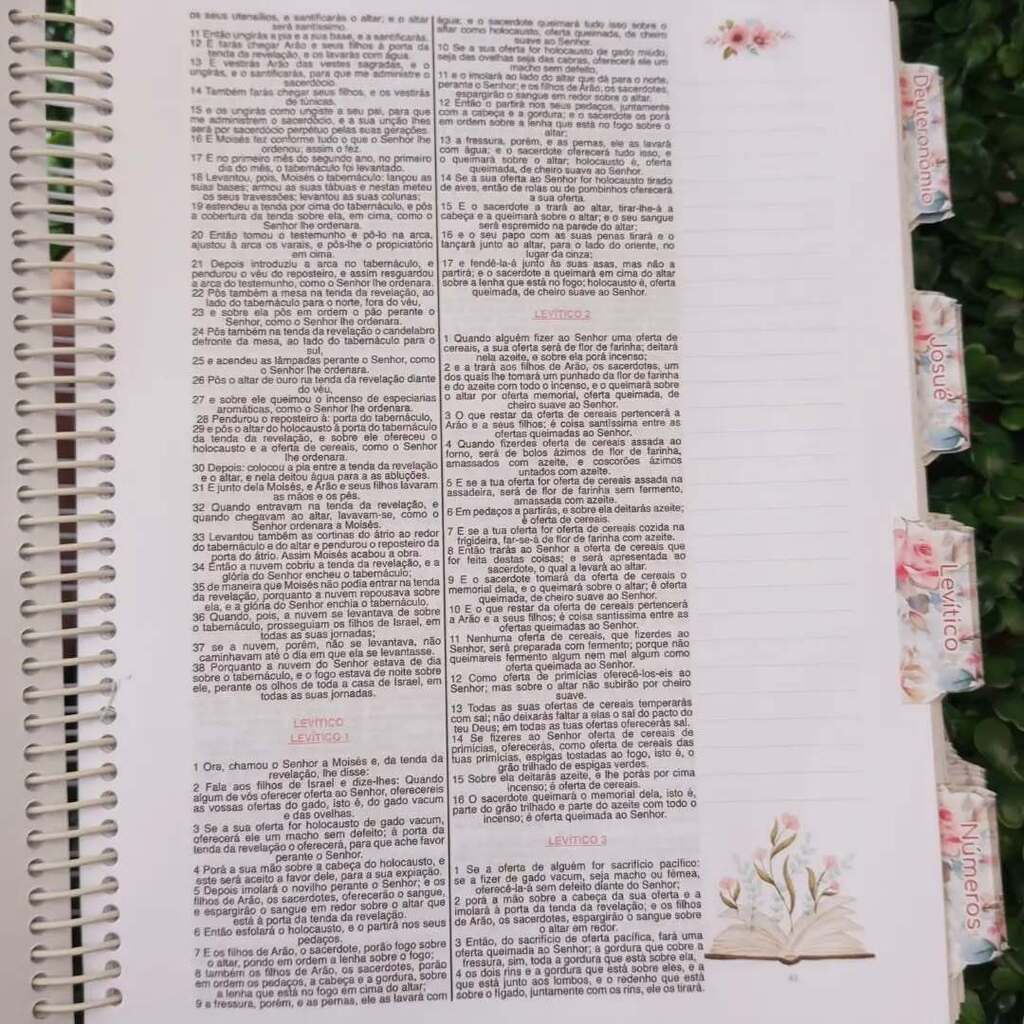 os seus utensílios, e santificarás o altar; e o altar
será santíssimo.
11 Então ungirás a pia e a sua base, e a santificarás.
12 E farás chegar Arão e seus filhos à porta da
tenda da revelação, e os lavarás com água.
13 E vestirás Arão das vestes sagradas, e o
ungirás, e o santificarás, para que me administre o
sacerdócio
14 Também farás chegar seus filhos, e os vestirás
de túnicas,
15 e os ungirás como ungiste a seu pai, para que
me administrem o sacerdócio, e a sua unção lhes
será por sacerdócio perpétuo pelas suas gerações.
16 E Moisés fez conforme tudo o que o Senhor lhe
ordenou; assim o fez.
17 E no primeiro mês do segundo ano, no primeiro
dia do mês, o tabernáculo foi levantado.
18 Levantou, pois, Moisés o tabernáculo: lançou as
suas bases; armou as suas tábuas e nestas meteu
os seus travessões; levantou as suas colunas;
19 estendeu a tenda por cima do tabernáculo, e pôs
a cobertura da tenda sobre ela, em cima, como o
Senhor lhe ordenara.
20 Então tomou o testemunho e pô-lo na arca,
ajustou à arca os varais, e pôs-lhe o propiciatório
em cima.
21 Depois introduziu a arca no tabernáculo, e
pendurou o véu do reposteiro, e assim resguardou
a arca do testemunho, como o Senhor lhe ordenara.
22 Pôs também a mesa na tenda da revelação, ao
lado do tabernáculo para o norte, fora do véu,
23 e sobre ela pôs em ordem o pão perante o
Senhor, como o Senhor lhe ordenara.
24 Pôs também na tenda da revelação o candelabro
defronte da mesa, ao lado do tabernáculo para o
sul,
25 e acendeu as lâmpadas perante o Senhor, como
o Senhor lhe ordenara.
26 Pôs o altar de ouro na tenda da revelação diante
do véu,
27 e sobre ele queimou o incenso de especiarias
aromáticas, como o Senhor lhe ordenara.
28 Pendurou o reposteiro à: porta do tabernáculo,
29 e pôs o altar do holocausto à porta do tabernáculo
da tenda da revelação, e sobre ele ofereceu o
holocausto e a oferta de cereais, como o Senhor
lhe ordenara.
30 Depois: colocou a pia entre a tenda da revelação
e o altar, e nela deitou água para a as abluções.
31 E junto dela Moisés, e Arão e seus filhos lavaram
as mãos e os pés.
32 Quando entravam na tenda da revelação, e
quando chegavam ao altar, lavavam-se, como o
Senhor ordenara a Moisés.
33 Levantou também as cortinas do átrio ao redor
do tabernáculo e do altar e pendurou o reposteiro da
porta do átrio. Assim Moisés acabou a obra.
34 Então a nuvem cobriu a tenda da revelação, e a
glória do Senhor encheu o tabernáculo;
35 de maneira que Moisés não podia entrar na tenda
da revelação, porquanto a nuvem repousava sobre
ela, e a glória do Senhor enchia o tabernáculo.
36 Quando, pois, a nuvem se levantava de sobre
o tabernáculo, prosseguiam os filhos de Israel, em
todas as suas jornadas;
37 se a nuvem, porém, não se levantava, não
caminhavam até o dia em que ela se levantasse.
38 Porquanto a nuvem do Senhor estava de dia
sobre o tabernáculo, e o fogo estava de noite sobre
ele, perante os olhos de toda a casa de Israel, em
todas as suas jornadas.
LEVÍTICO
LEVÍTICO 1
1 Ora, chamou o Senhor a Moisés e, da tenda da
revelação, lhe disse:
2 Fala aos filhos de Israel e dize-lhes: Quando
algum de vós oferecer oferta ao Senhor, oferecereis
as vossas ofertas do gado, isto é, do gado vacum
e das ovelhas.
3 Se a sua oferta for holocausto de gado vacum,
oferecerá ele um macho sem defeito; à porta da
tenda da revelação o oferecerá, para que ache favor
perante o Senhor.
4 Porá a sua mão sobre a cabeça do holocausto, e
este será aceito a favor dele, para a sua expiação.
5 Depois imolará o novilho perante o Senhor; e os
filhos de Arão, os sacerdotes, oferecerão o sangue,
e espargirão o sangue em redor sobre o altar que
está à porta da tenda da revelação.
6 Então esfolará o holocausto, e o partirá nos seus
pedaços.
7 E os filhos de Arão, o sacerdote, porão fogo sobre
o altar, pondo em ordem a lenha sobre o fogo;
8 também os filhos de Arão, os sacerdotes, porão
em ordem os pedaços, a cabeça e a gordura, sobre
a lenha que está no fogo em cima do altar;
9 a fressura, porém, e as pernas, ele as lavará com
água; e o sacerdote queimará tudo isso sobre o
altar como holocausto, oferta queimada, de cheiro
suave ao Senhor.
10 Se a sua oferta for holocausto de gado miúdo,
seja das ovelhas seja das cabras, oferecerá ele um
macho sem defeito,
11 e o imolará ao lado do altar que dá para o norte,
perante o Senhor; e os filhos de Arão, os sacerdotes,
espargirão o sangue em redor sobre o altar.
12 Então o partirá nos seus pedaços, juntamente
com a cabeça e a gordura; e o sacerdote os porá
em ordem sobre a lenha que está no fogo sobre o
altar;
13 a fressura, porém, e as pernas, ele as lavará
com água; e o sacerdote oferecerá tudo isso, e
o queimará sobre o altar; holocausto é, oferta
queimada, de cheiro suave ao Senhor.
14 Se a sua oferta ao Senhor for holocausto tirado
de aves, então de rolas ou de pombinhos oferecerá
a sua oferta.
15 E o sacerdote a trará ao altar, tirar-lhe-á a
cabeça e a queimará sobre o altar; e o seu sangue
será espremido na parede do altar;
16 e o seu papo com as suas penas tirará e o
lançará junto ao altar, para o lado do oriente, no
lugar da cinza;
17 e fendê-la-á junto às suas asas, mas não a
partirá; e o sacerdote a queimará em cima do altar
sobre a lenha que está no fogo; holocausto é, oferta
queimada, de cheiro suave ao Senhor.
LEVÍTICO 2
1 Quando alguém fizer ao Senhor uma oferta de
cereais, a sua oferta será de flor de farinha; deitará
nela azeite, e sobre ela porá incenso;
2 e a trará aos filhos de Arão, os sacerdotes, um
dos quais lhe tomará um punhado da flor de farinha
e do azeite com todo o incenso, e o queimará sobre
o altar por oferta memorial, oferta queimada, de
cheiro suave ao Senhor.
3 O que restar da oferta de cereais pertencerá a
Arão e a seus filhos; é coisa santíssima entre as
ofertas queimadas ao Senhor.
4 Quando fizerdes oferta de cereais assada ao
forno, será de bolos ázimos de flor de farinha,
amassados com azeite, e coscorões ázimos
untados com azeite.
5 E se a tua oferta for oferta de cereais assada na
assadeira, será de flor de farinha sem fermento,
amassada com azeite.
6 Em pedaços a partirás, e sobre ela deitarás azeite;
é oferta de cereais.
7 E se a tua oferta for oferta de cereais cozida na
frigideira, far-se-á de flor de farinha com azeite.
8 Então trarás ao Senhor a oferta de cereais que
for feita destas coisas; e será apresentada ao
sacerdote, o qual a levará ao altar.
9 E o sacerdote tomará da oferta de cereais o
memorial dela, e o queimará sobre o altar; é oferta
queimada, de cheiro suave ao Senhor.
10 E o que restar da oferta de cereais pertencerá
a Arão e a seus filhos; é coisa santíssima entre as
ofertas queimadas ao Senhor.
11 Nenhuma oferta de cereais, que fizerdes ao
Senhor, será preparada com fermento; porque não
queimareis fermento algum nem mel algum como
oferta queimada ao Senhor.
12 Como oferta de primícias oferecê-los-eis ao
Senhor; mas sobre o altar não subirão por cheiro
suave.
13 Todas as suas ofertas de cereais temperarás
com sal; não deixarás faltar a elas o sal do pacto do
teu Deus; em todas as tuas ofertas oferecerás sal.
14 Se fizeres ao Senhor oferta de cereais de
primícias, oferecerás, como oferta de cereais das
tuas primícias, espigas tostadas ao fogo, isto é, o
grão trilhado de espigas verdes.
15 Sobre ela deitarás azeite, e lhe porás por cima
incenso; é oferta de cereais.
16 O sacerdote queimará o memorial dela, isto é,
parte do grão trilhado e parte do azeite com todo o
incenso; é oferta queimada ao Senhor.
LEVÍTICO 3
1 Se a oferta de alguém for sacrifício pacífico:
se a fizer de gado vacum, seja macho ou fêmea,
oferecê-la-á sem defeito diante do Senhor;
2 porá a mão sobre a cabeça da sua oferta e a
imolará à porta da tenda da revelação; e os filhos
de Arão, os sacerdotes, espargirão o sangue sobre
o altar em redor.
3 Então, do sacrifício de oferta pacífica, fará uma
oferta queimada ao Senhor; a gordura que cobre a
fressura, sim, toda a gordura que está sobre ela,
4 os dois rins e a gordura que está sobre eles, e a
que está junto aos lombos, e o redenho que está
sobre o fígado, juntamente com os rins, ele os tirará.
Deuteronômio
Josué
Levítico
Números